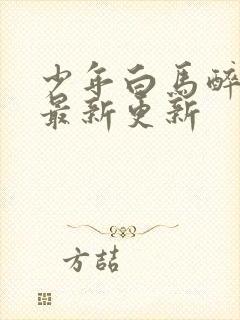 少年白馬醉
最新更新
方喆